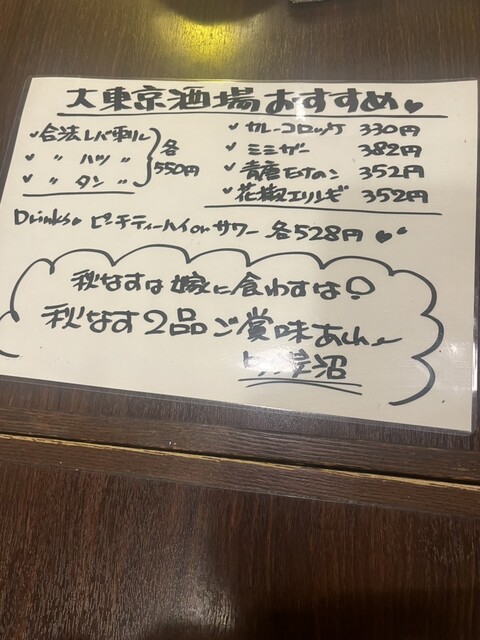 大東京酒場おすすめ♥
✓合法レバ刺し
✓ 〃 ハツ 〃
✓ 〃 タン 〃
各550円
✓カレーコロッケ 330円
✓ミミガー 382円
✓青唐たけのこ 352円
✓花椒エリンギ 352円
Drinks ピーチティーハイorサワー 各528円♥
秋なすは嫁に食わすな!
秋なす2品ご賞味あれ〜